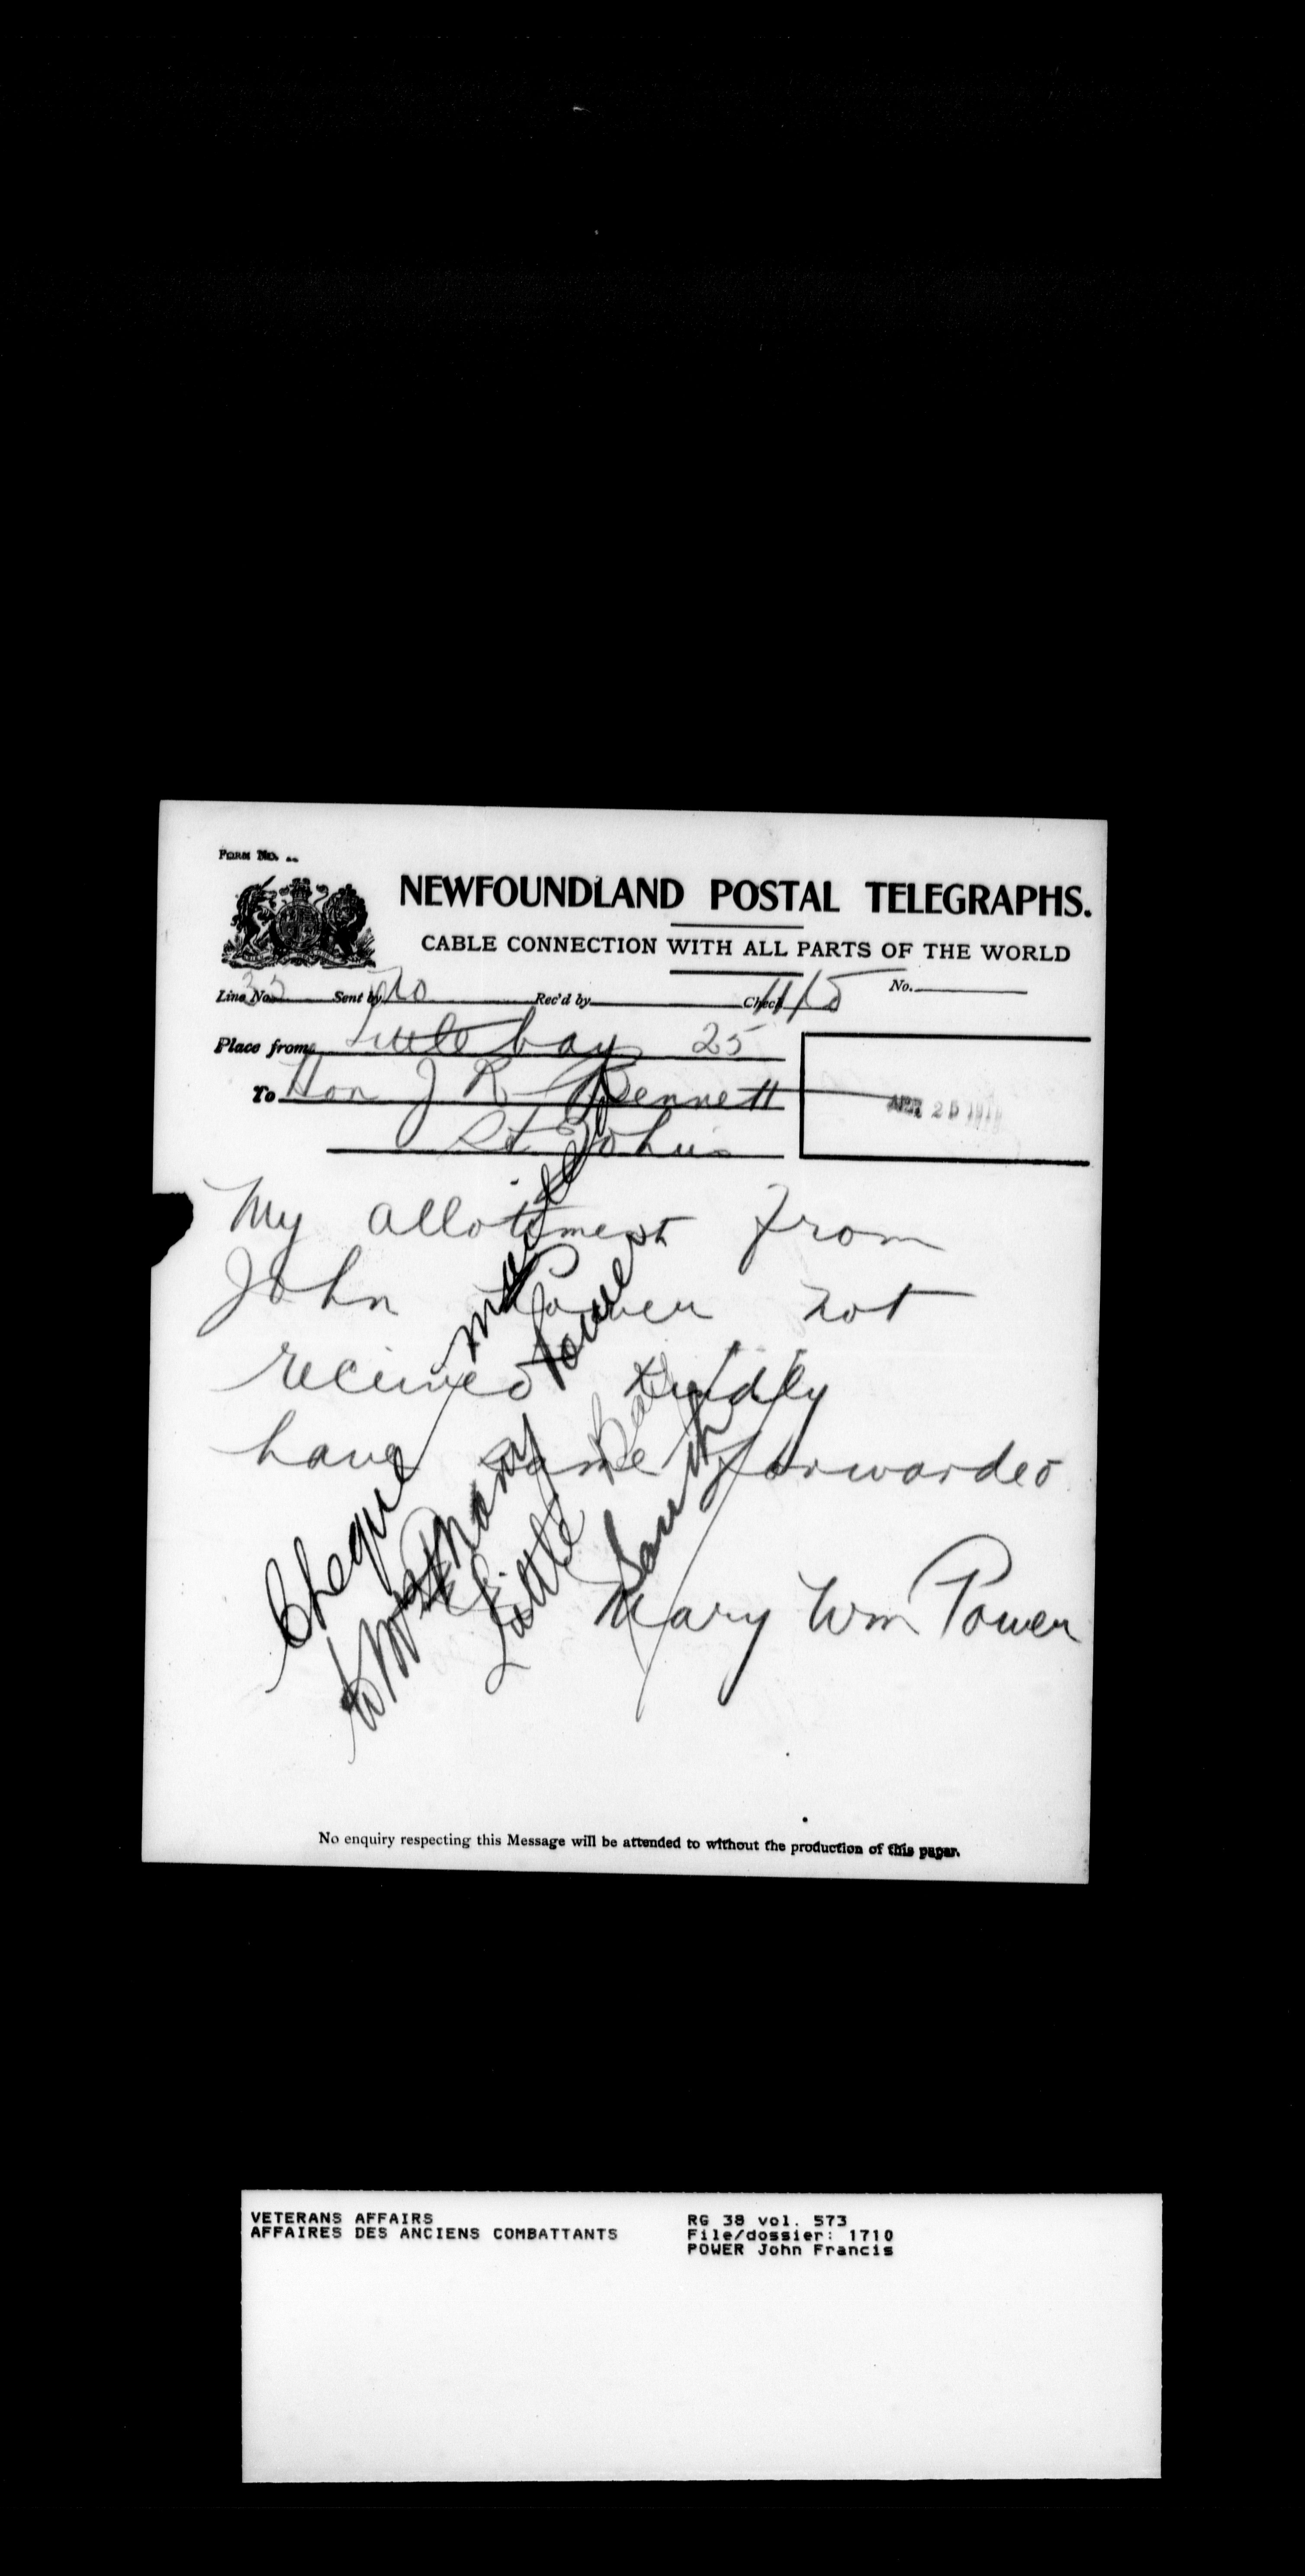 FORM NO.
NEWFOUNDLAND POSTAL TELEGRAPHS.
CABLE CONNECTION WITH ALL PARTS OF THE WORLD
Line No. Sent by Rec'd by Check No.
Place from Little bay 25
To Hon J R Bennett
St Johns
APR 25
My allotment from
John Power not
received kindly
have same forwarded
Mary Wm Power
Cheque
to Mrs Mary Power
Little Bay
South
No enquiry respecting this Message will be attended to without the production of this paper.
VETERANS AFFAIRS
AFFAIRES DES ANCIENS COMBATTANTS
RG 38 vol. 573
File/dossier: 1710
POWER John Francis